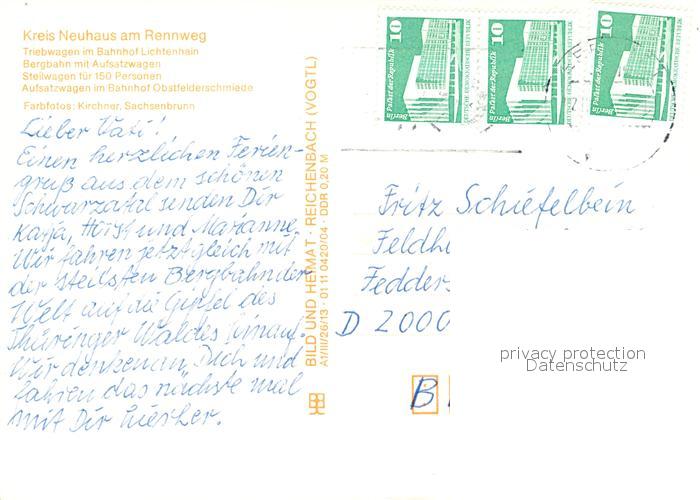 Kreis Neuhaus am Rennweg
Triebwagen im Bahnhof Lichtenhain
Bergbahn mit Aufsatzwagen
Steilwagen für 150 Personen
Aufsatzwagen im Bahnhof Obstfelderschmiede
Farbfotos: Kirchner, Sachsenbrunn
Lieber Vati!
Einen herzlichen Ferien-
gruß aus dem schönen
Schwarzatal senden Dir
Katja, Horst und Marianne.
Wir fahren jetzt gleich mit
der steilsten Bergbahn der
Welt auf die Gipfel des
Thüringer Waldes hinauf.
Wir denken an Dich und
fahren das nächste mal
mit Dir hierher.
BILD UND HEIMAT · REICHENBACH (VOGTL)
A1/III/26/13 · 01 11 0420/04 · DDR 0,20 M
10
Berlin
Palast der Republik
DEUTSCHE DEMOKRATISCHE REPUBLIK
10
Berlin
Palast der Republik
DEUTSCHE DEMOKRATISCHE REPUBLIK
10
Berlin
Palast der Republik
Fritz Schiefelbein
Feldh
Fedders
D 2000
B
privacy protection
Datenschutz